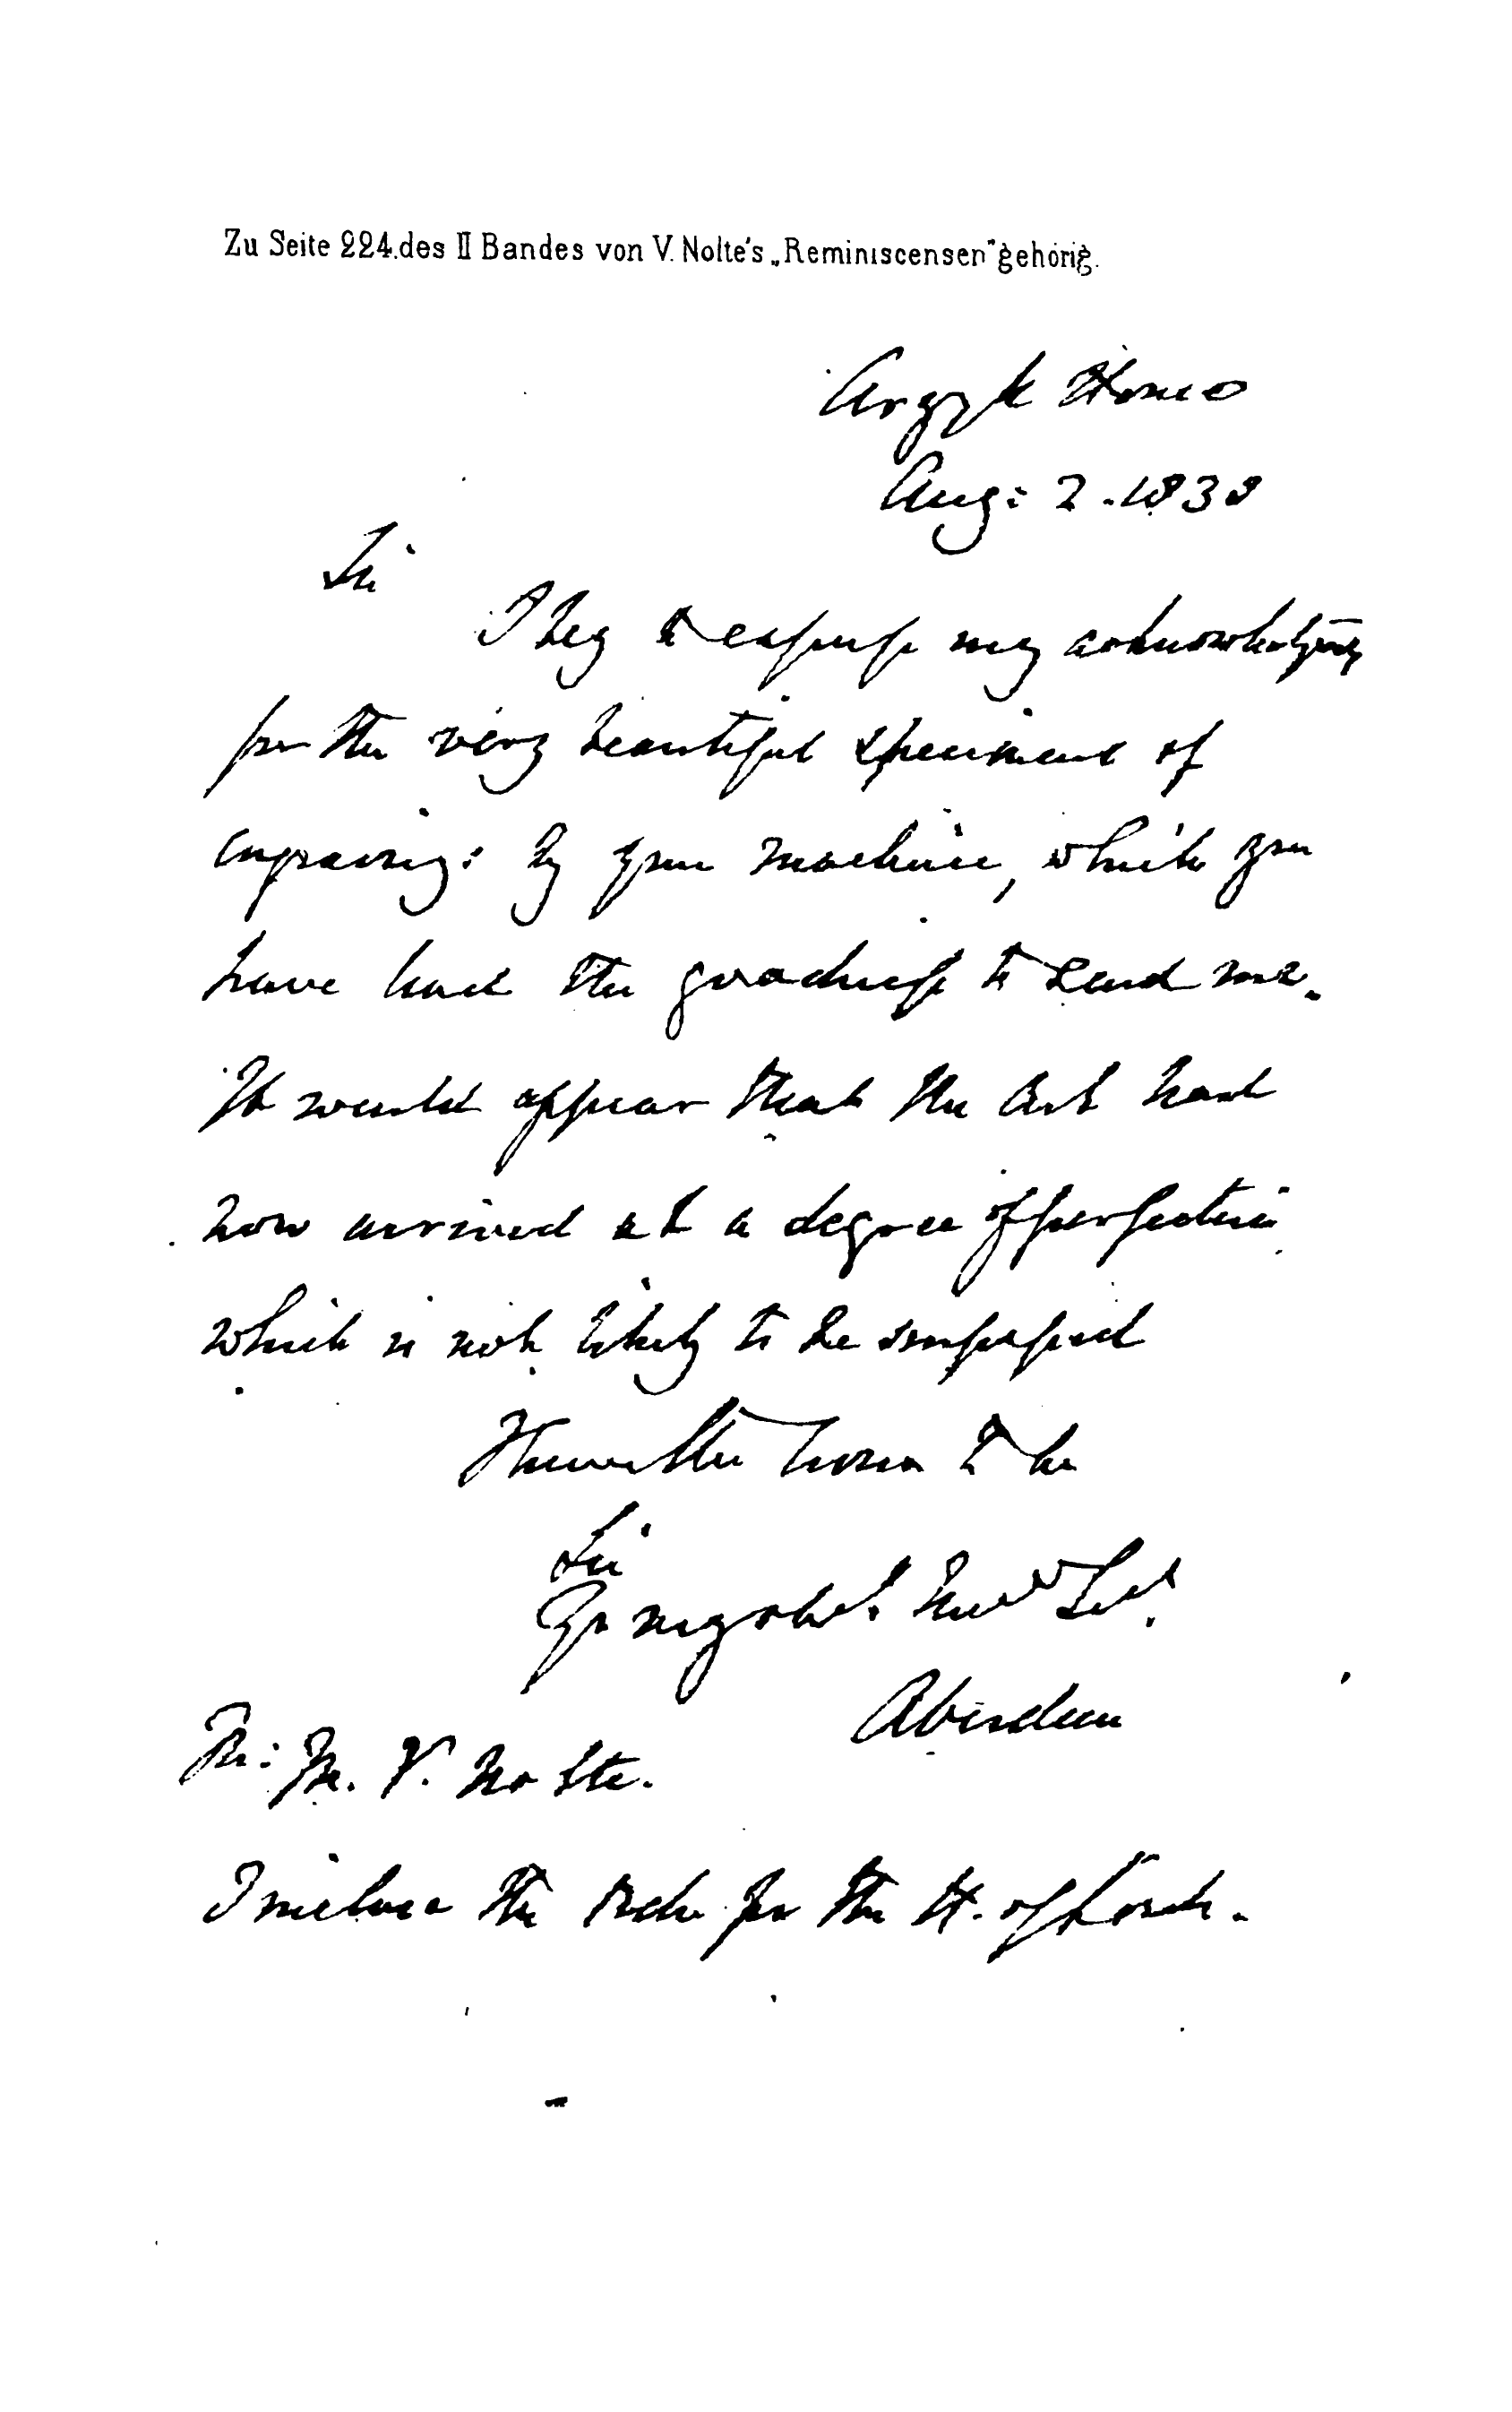 Zu Seite 224. des II Bandes von V. Nolte's „Reminiscensen" gehörig.
Argyle House
Aug: 2. 1838
Sir
I beg to express my acknowledgmts
for the very beautiful specimens of
engraving: by your machine, which you
have had the goodness to send me.
It would appear that the Art had
now arrived at a degree of perfection
which is not likely to be surpassed
I have the honor to be
Sir
Yr. my obedt. humble Sert.
Aberdeen
M. V. Nolte.
I inclose the order for the H. of Lords.